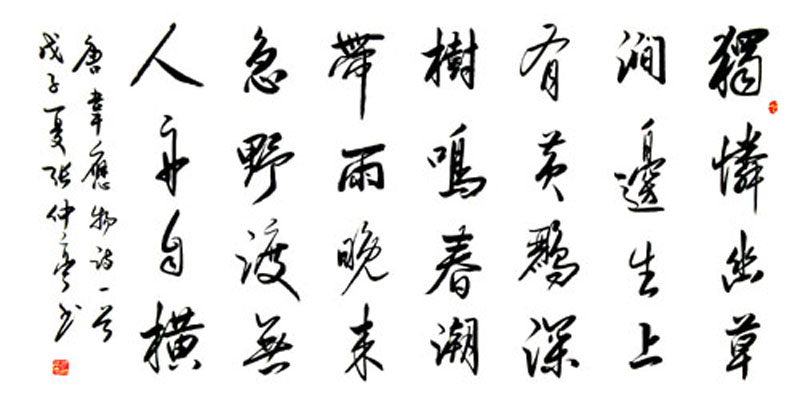 獨憐幽草
澗邊生上
有黄鸝深
樹鳴春潮
帶雨晚来
急野渡無
人舟自橫
唐韋應物詩一首
戊子夏張仲亭書